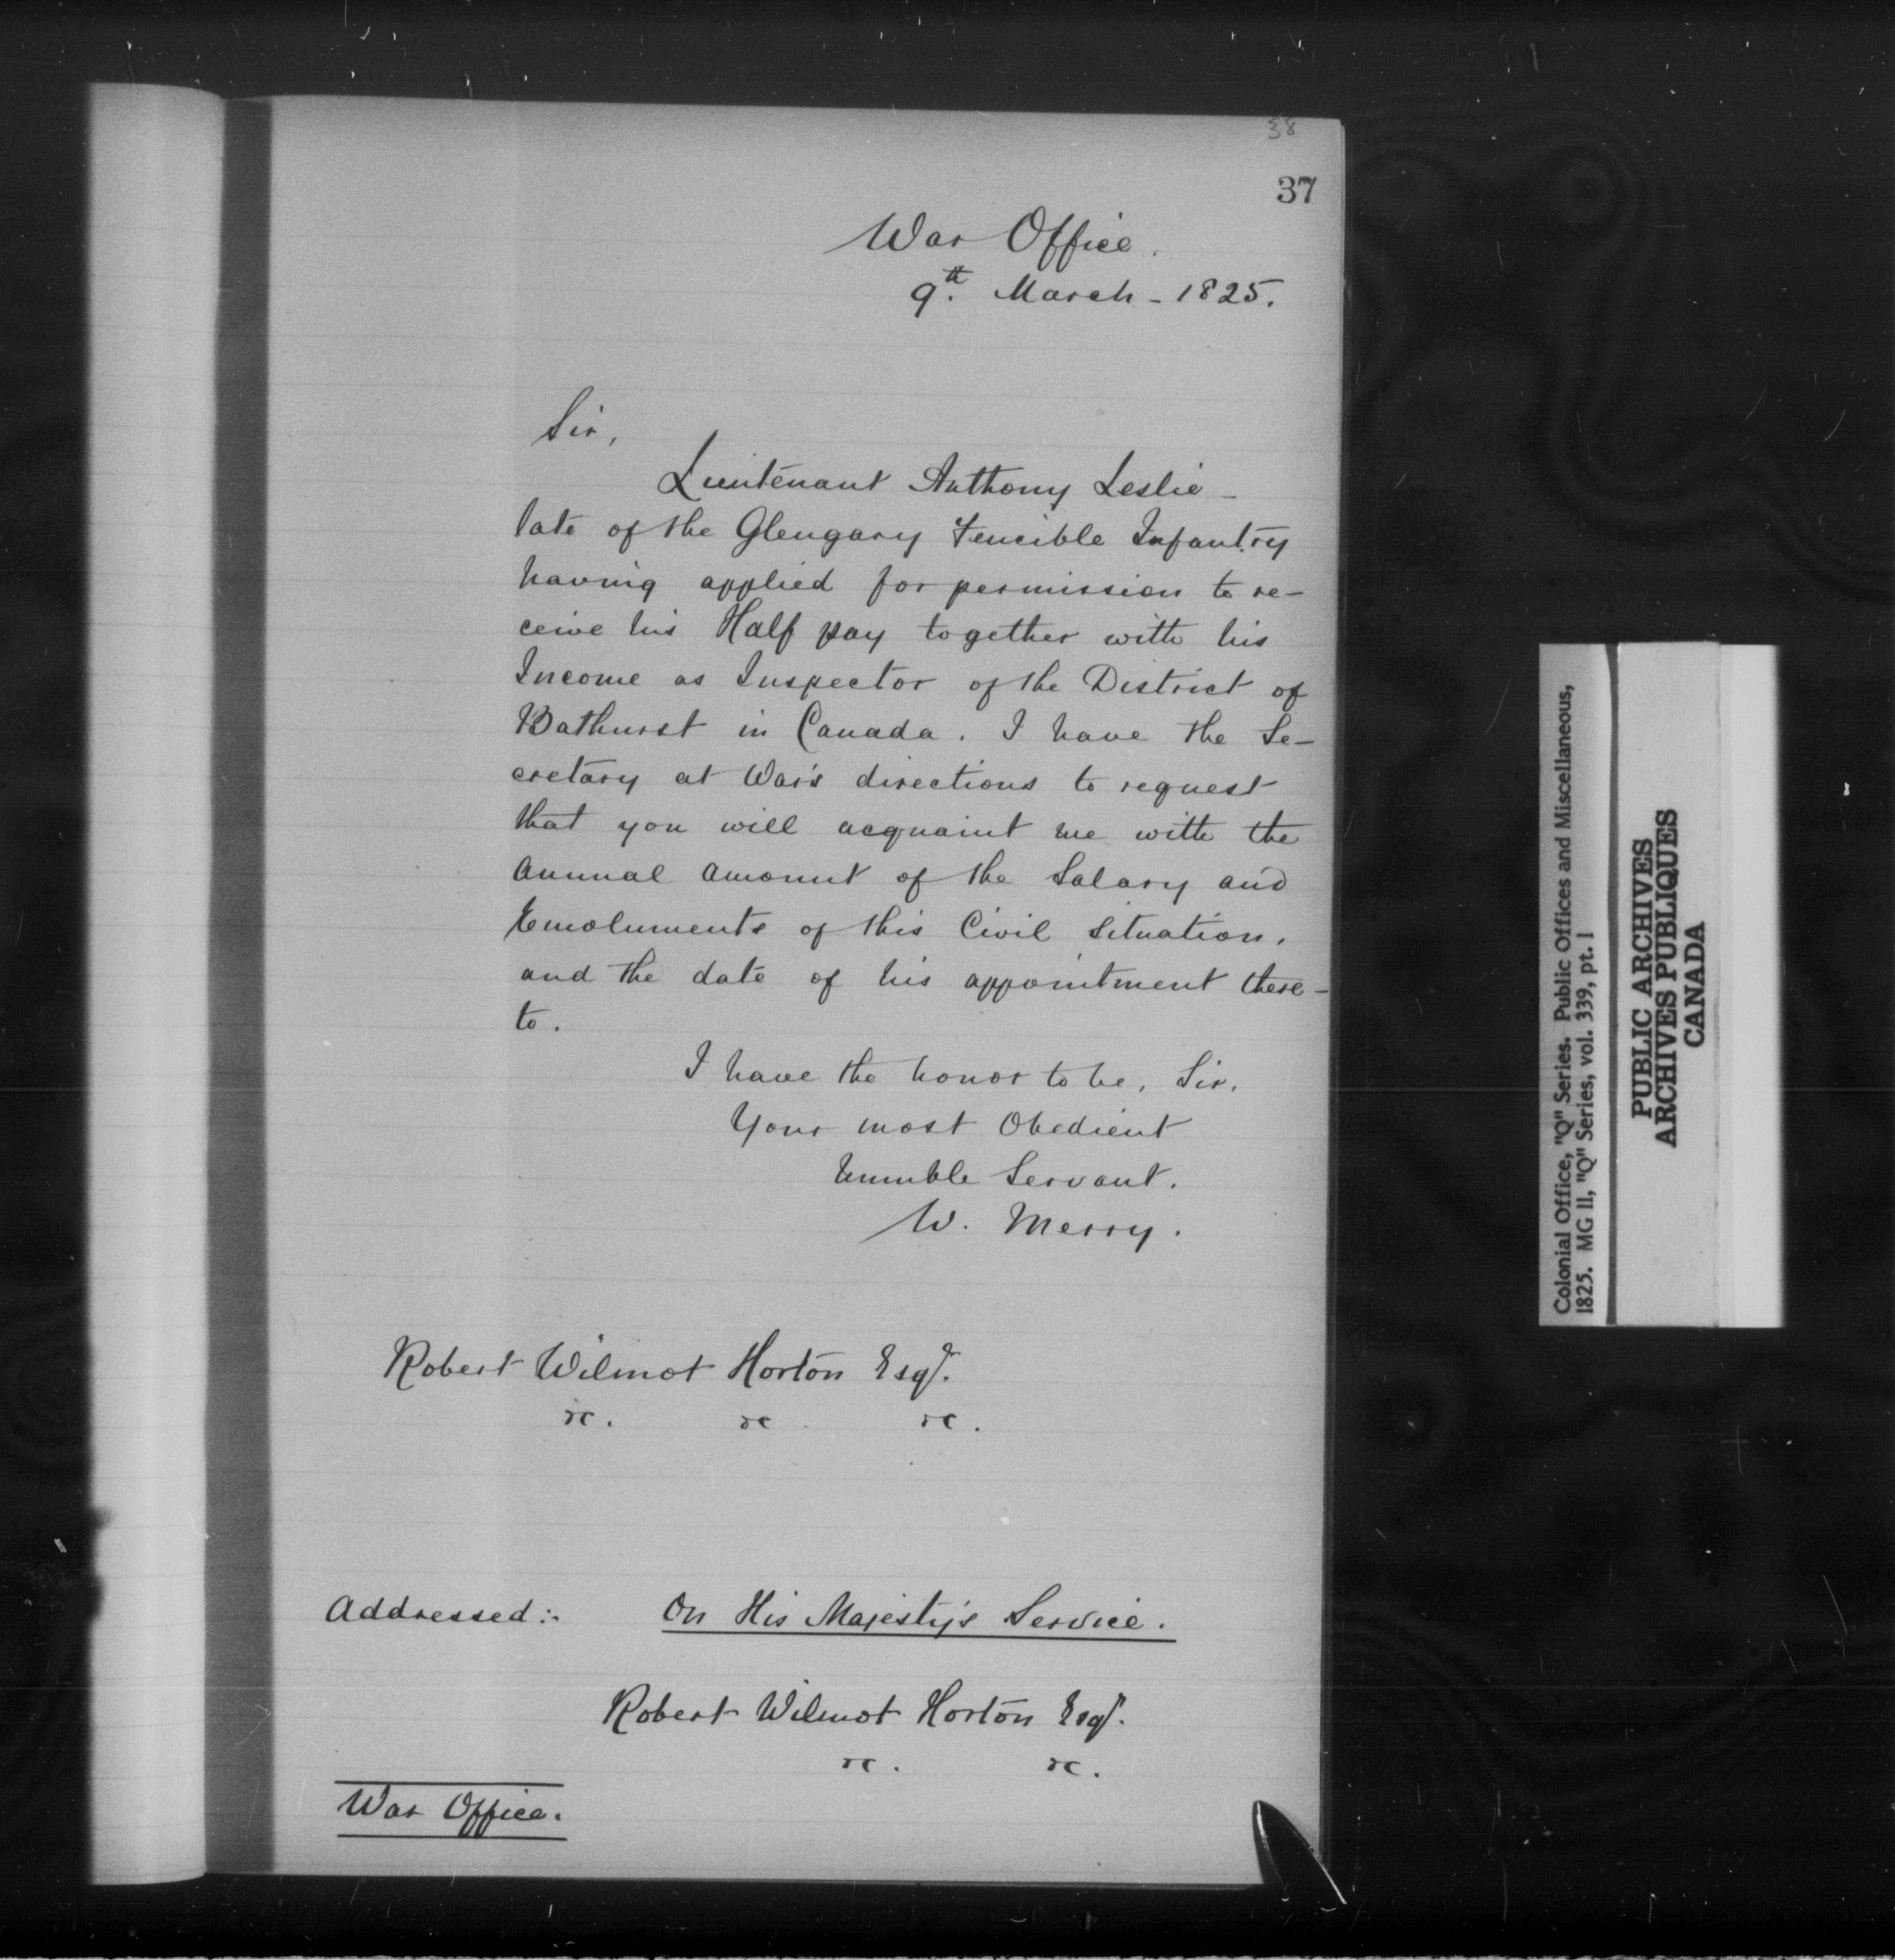 38
37
War Office.
9th. March - 1825.
Sir,
Lieutenant Anthony Leslie -
late of the Glengary Fencible Infantry
having applied for permission to re-
ceive his Half pay together with his
Income as Inspector of the District of
Bathurst in Canada. I have the Se-
cretary at War's directions to request
that you will acquaint me with the
annual amount of the Salary and
Emoluments of this Civil Situation,
and the date of his appointment there-
to.
I have the honor to be, Sir,
Your most Obedient
humble Servant.
W. Merry.
Robert Wilmot Horton Esqr.
&c. &c. &c.
Addressed:-
On His Majesty's Service.
Robert Wilmot Horton Esqr.
&c. &c.
War Office.
Colonial Office, "Q" Series. Public Offices and Miscellaneous,
1825. MG 11, "Q" Series, vol. 339, pt. 1
PUBLIC ARCHIVES
ARCHIVES PUBLIQUES
CANADA